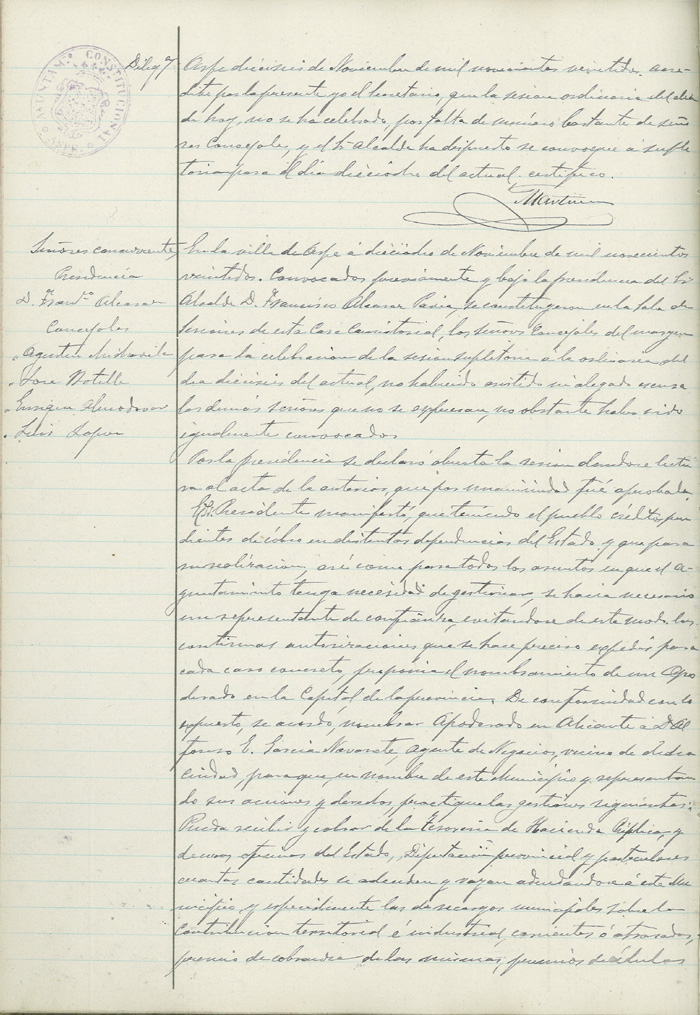 AYUNTAM. CONSTITUCIONAL
ASPE
Dilig.ª
Aspe dieciseis de Noviembre de mil novecientos veintidos. acre-
dito por la presente yo el Secretario, que la sesion ordinaria del dia
de hoy, no se ha celebrado, por falta de número bastante de seño-
res Concejales, y el Sr. Alcalde ha dispuesto se convoque á suple-
toria para el dia dieciocho del actual. certifico.
Martinez
Señores concurrentes
Presidencia
D. Fran.co Alcaraz
Concejales
" Agustin
" Jose Botella
" Enrique Almodovar
" Luis Lopez
En la villa de Aspe á dieciocho de Noviembre de mil novecientos
veintidos. Convocados previamente y bajo la presidencia del Sr.
Alcalde D. Francisco Alcaraz Pavia, se constituyeron en la Sala de
Sesiones de esta Casa Consistorial, los señores Concejales del margen
para la celebracion de la sesion supletoria á la ordinaria del
dia dieciseis del actual, no habiendo asistido ni alegado escusa
los demás señores que no se expresan, no obstante haber sido
igualmente convocados.
Por la presidencia se declaró abierta la sesion dandose lectu-
ra al acta de la anterior, que por unanimidad fué aprobada.
El Sr. Presidente manifestó, que teniendo el pueblo créditos pen-
dientes de cobro en distintas dependencias del Estado y que para
su realizacion, así como para todos los asuntos en que el A-
yuntamiento tenga necesidad de gestionar, se hacia necesario
un representante de confianza, evitandose de este modo las
continuas autorizaciones que se hace preciso expedir para
cada caso concreto, proponia el nombramiento de un Apo-
derado en la Capital de la provincia. De conformidad con lo
expuesto, se acordó, nombrar Apoderado en Alicante á D. Al-
fonso E. Garcia Navarete, agente de Negocios, vecino de dicha
ciudad, para que, en nombre de este Municipio y representan-
do sus acciones y derechos, practique las gestiones siguientes:
Pueda recibir y cobrar de la Tesoreria de Hacienda pública, y
demas oficinas del Estado, Diputación provincial y particulares
cuantas cantidades se adeuden y vayan adeudandose á este Mu-
nicipio, y especialmente las de recargos municipales sobre la
Contribucion territorial é industrial, corrientes ó atrasados,
premio de cobranza de las mismas, premios de cédulas